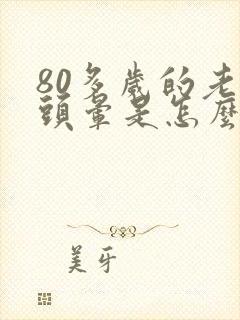 80多歲的老
頭暈是怎麼
美牙